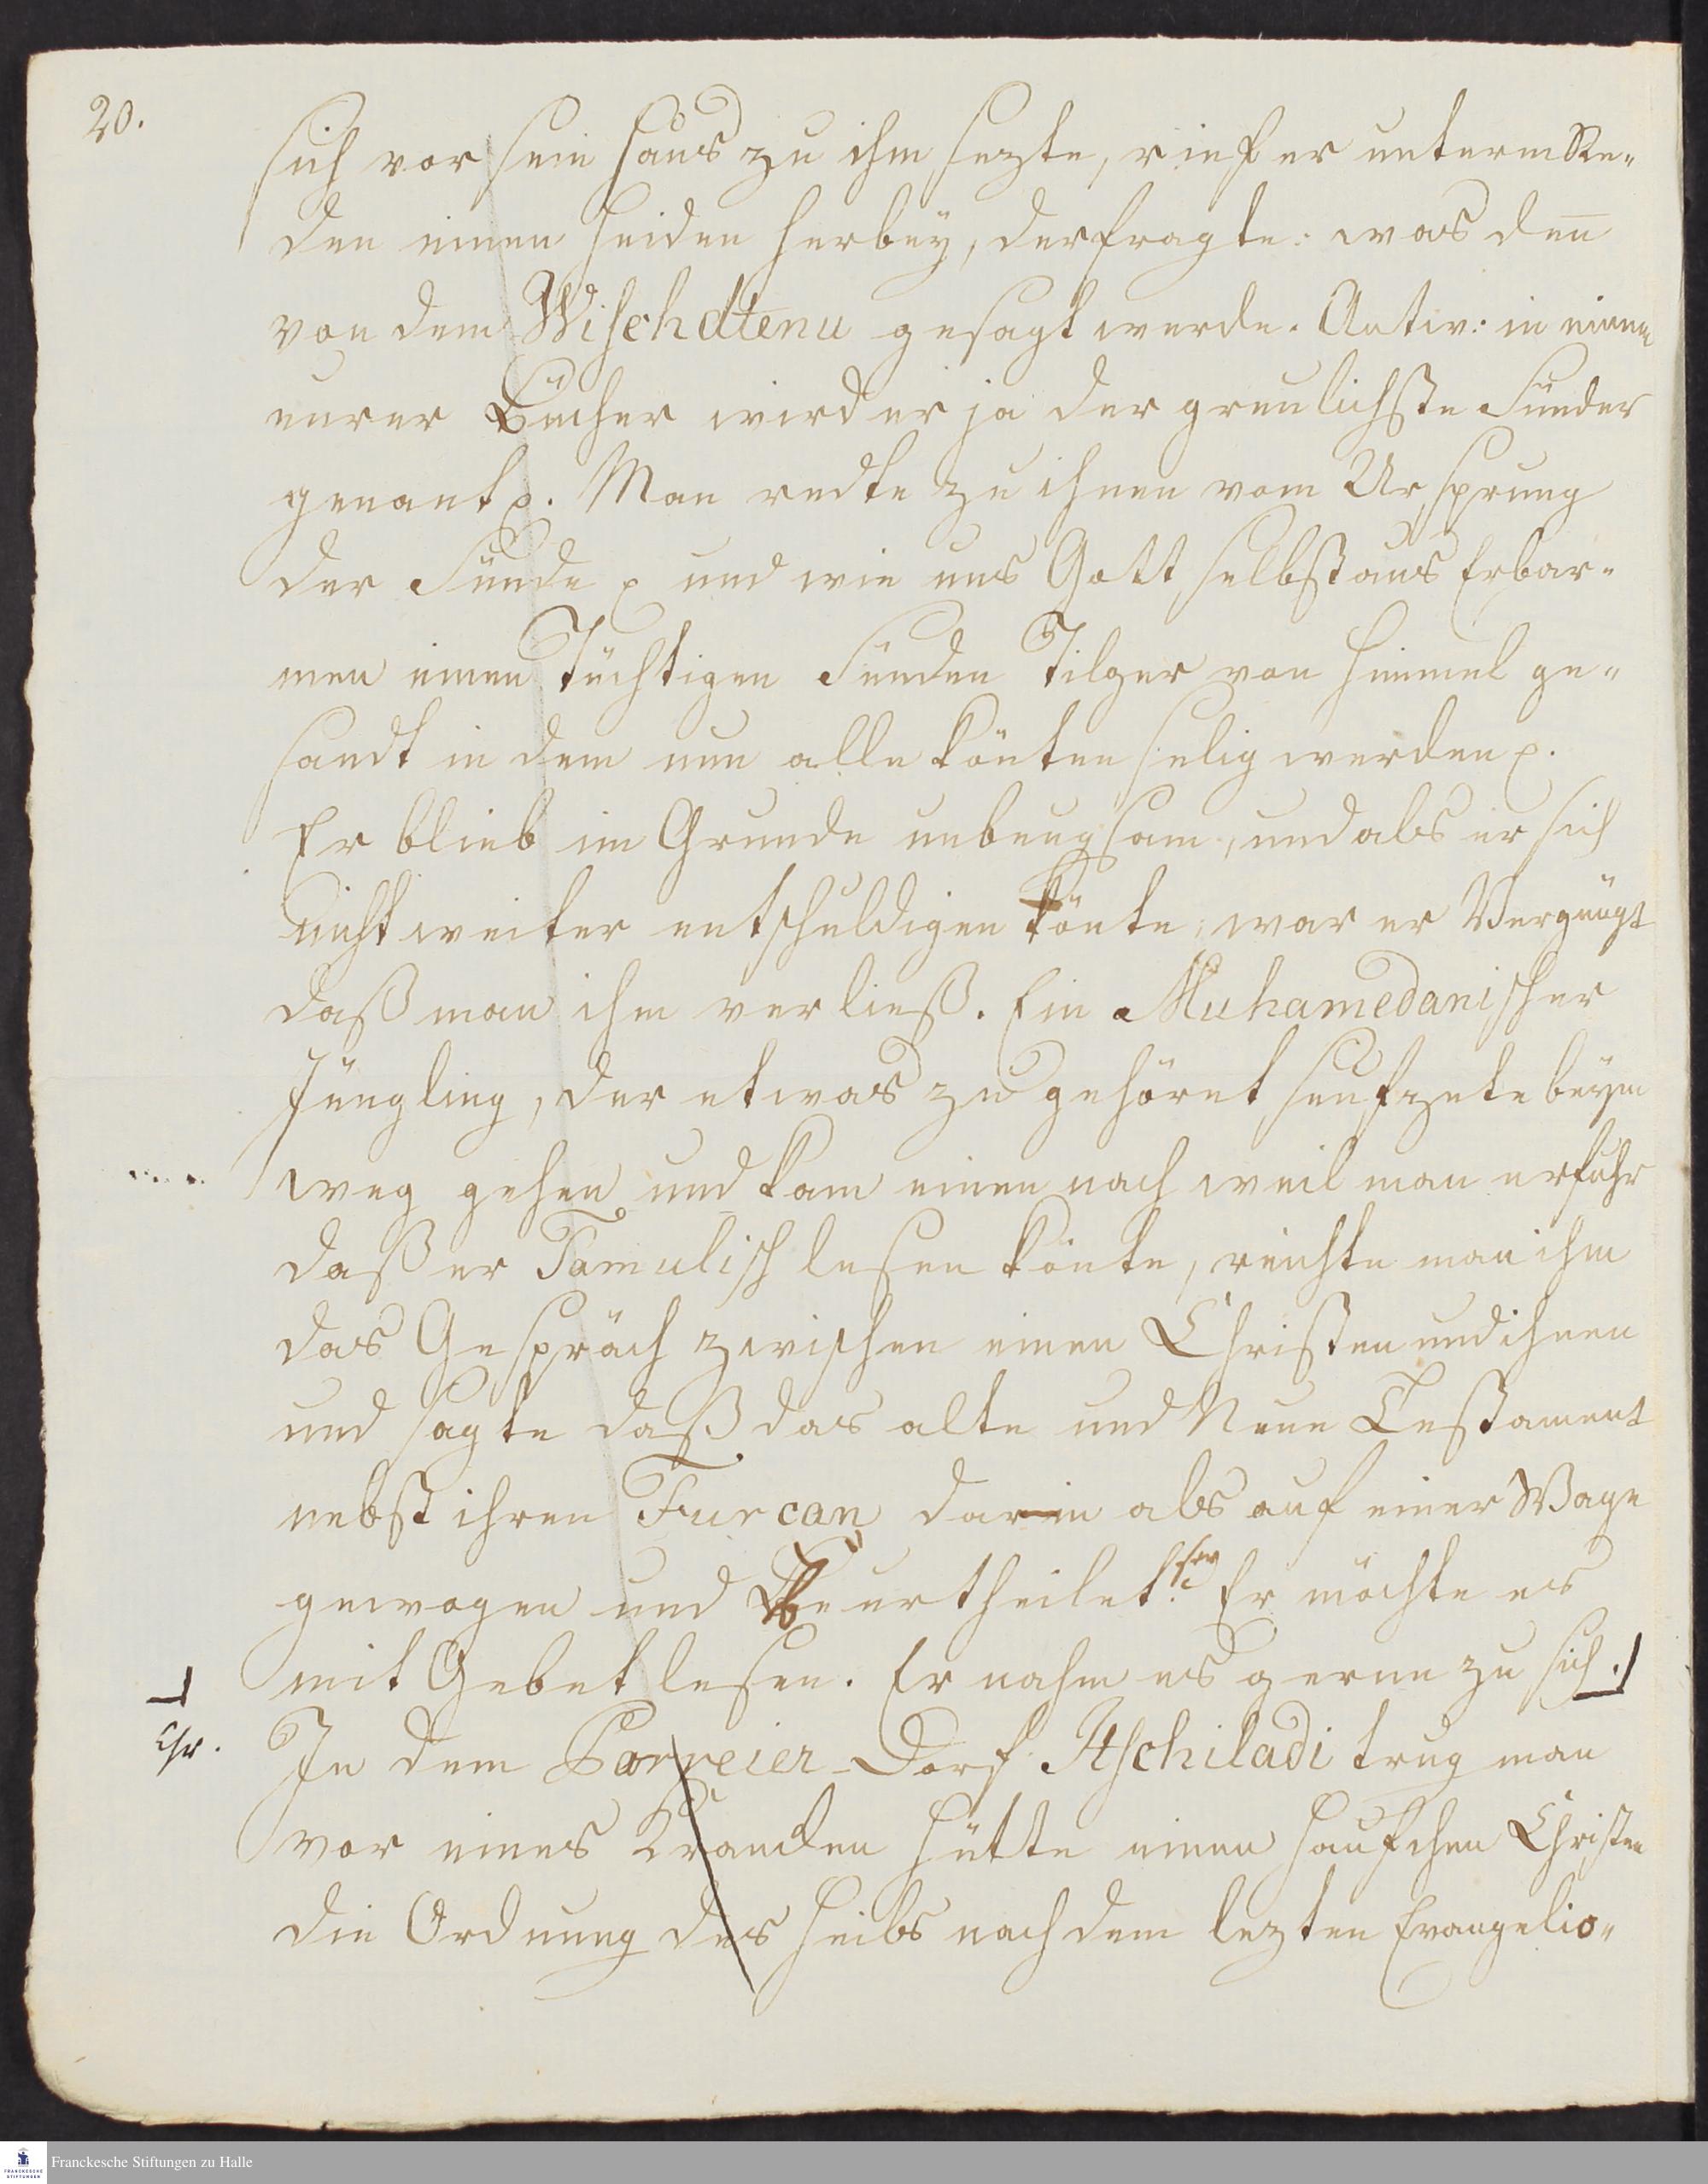 20.
sich vor sein Haus zu ihm sezte, rief er unterm Re-
den einen Heiden herbey, der fragte: was deñ
von dem Wischdtenu gesagt werde. Antw: in einem
eurer Bücher wird er ja der greulichste Sünder
genant p. Man redte zu ihnen vom Ursprung
der Sünde p und wie uns Gott selbst aus Erbar-
men einen tüchtigen Sünden Tilger von Himmel ge-
sandt in dem nun alle könten selig werden p.
Er blieb im Grunde unbeugsam, und als er sich
nicht weiter entschuldigen könte, war er Vergnügt
daß man ihm verließ. Ein Muhamedanischer
Jüngling, der etwas zu gehöret seufzete beym
weg gehen und kam einen nach weil man erfuhr
daß er Tamulisch lesen könte, reichte man ihm
das Gespräch zwischen einen Christen und ihnen
und sagte daß das alte und Neue Testament
nebst ihren Furcan darin als auf einer Wage
gewogen und Beurtheilet sey. Er möchte es
mit Gebet lesen. Er nahm es gerne zu sich.
Chr.
In dem Parreier-Dorf Itschiladi trug man
vor eines Krancken Hütte einen Haufchen Christen
die Ordnung des Heils nach dem lezten Evangelio-
Franckesche Stiftungen zu Halle
FRANCKESCHE
STIFTUNGEN